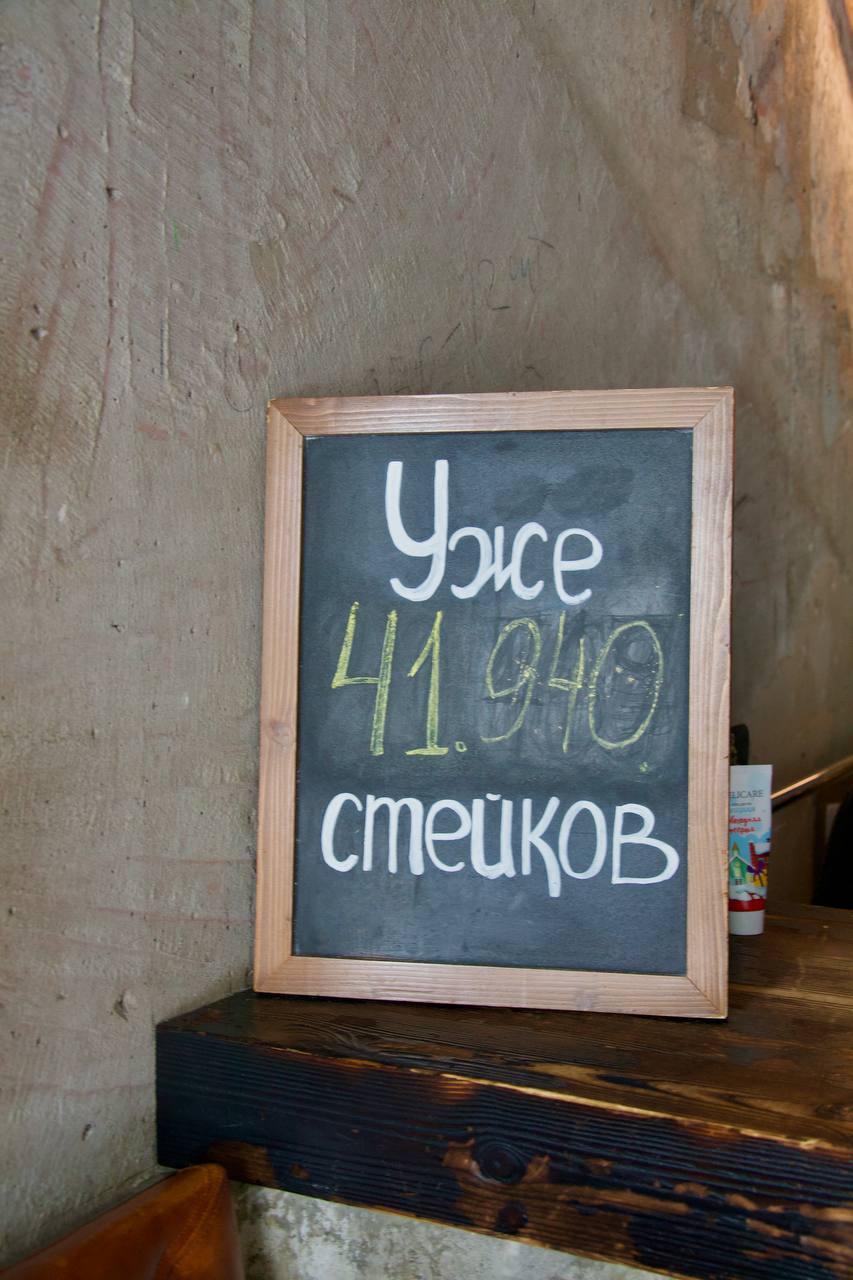 Уже
41.940
стейков
ELICARE